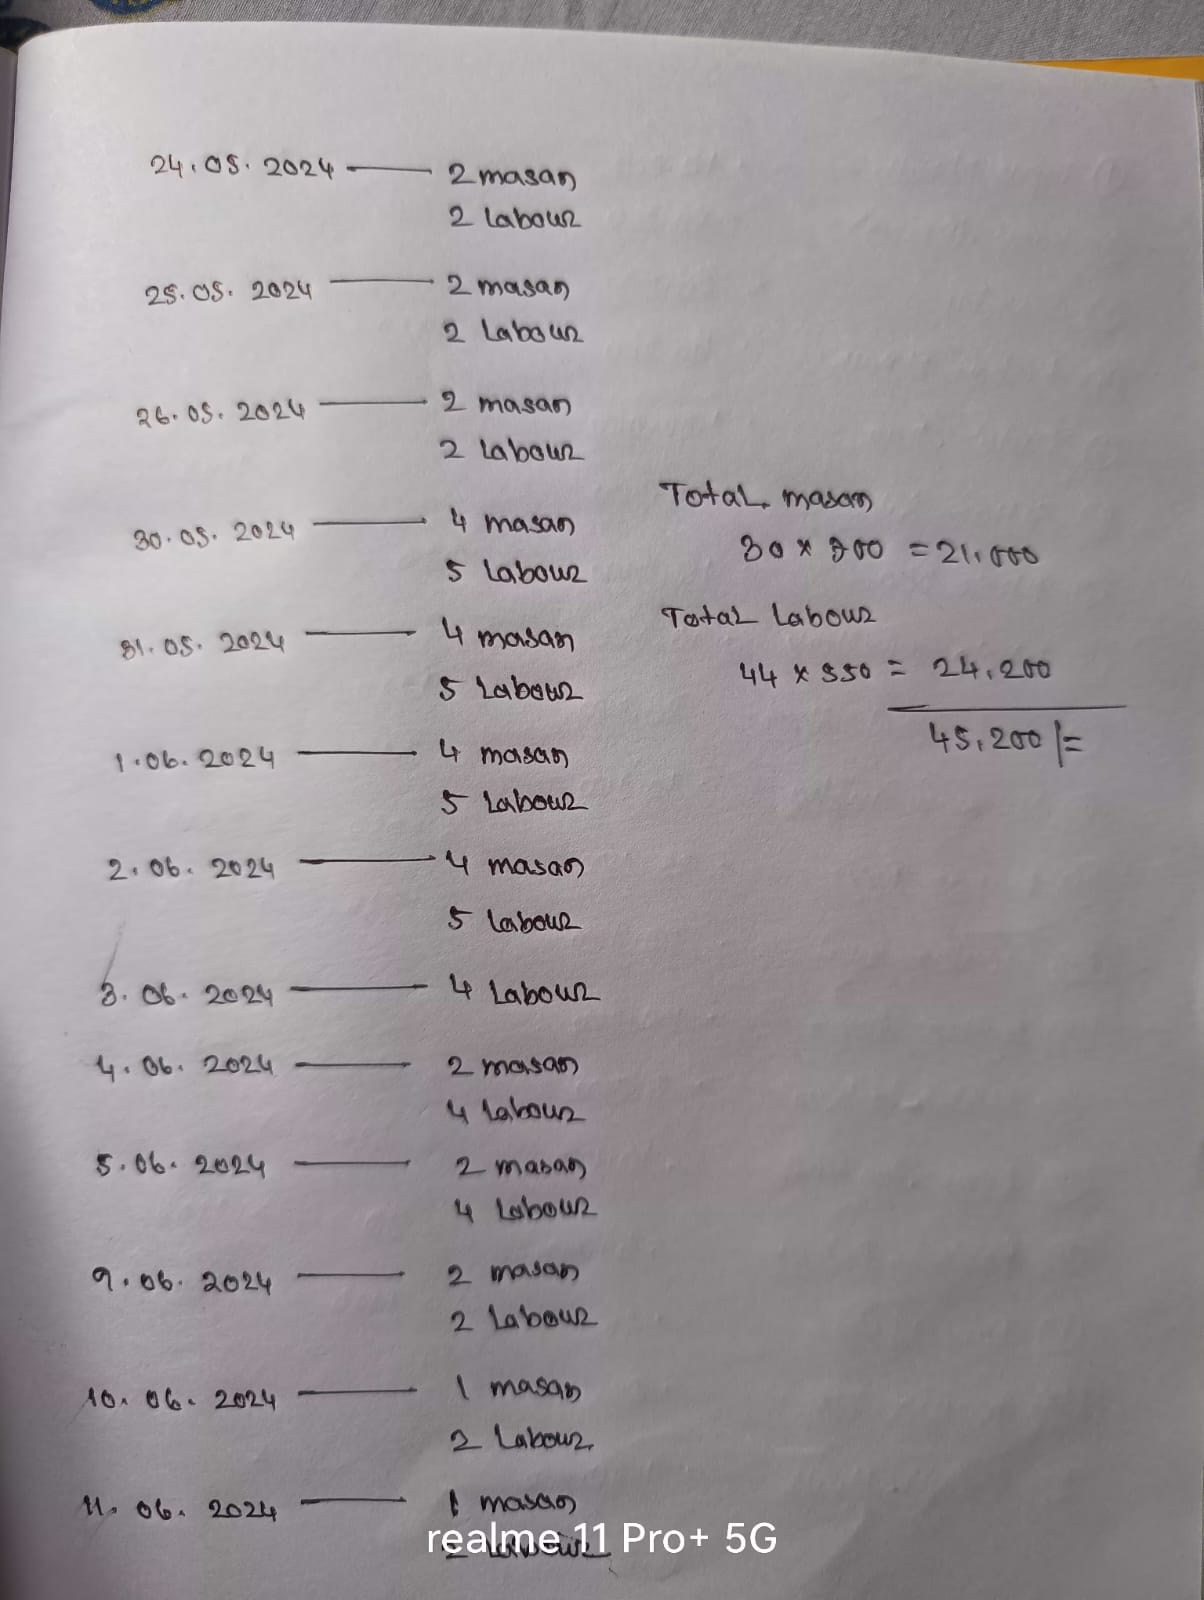 24.05.2024 — 2 masan
2 Labour
25.05.2024 — 2 masan
2 Labour
26.05.2024 — 2 masan
2 Labour
30.05.2024 — 4 masan
5 Labour
31.05.2024 — 4 masan
5 Labour
1.06.2024 — 4 masan
5 Labour
2.06.2024 — 4 masan
5 Labour
3.06.2024 — 4 Labour
4.06.2024 — 2 masan
4 Labour
5.06.2024 — 2 masan
4 Labour
9.06.2024 — 2 masan
2 Labour
10.06.2024 — 1 masan
2 Labour
11.06.2024 — 1 masan
2 Labour
Total masan
30 × 700 = 21,000
Total Labour
44 × 550 = 24,200
45,200/=
realme 11 Pro+ 5G